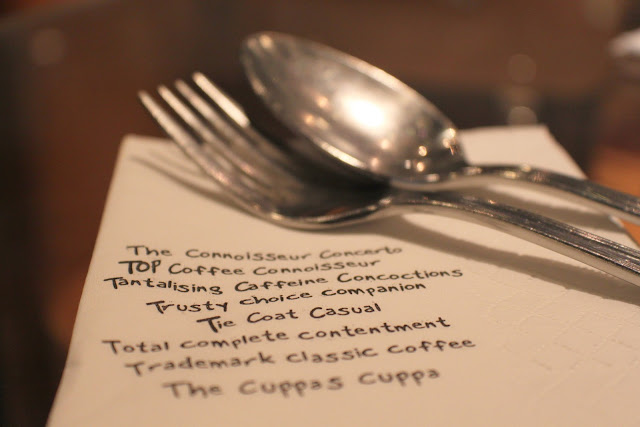 The Connoisseur Concerto
TOP Coffee Connoisseur
Tantalising Caffeine Concoctions
Trusty choice companion
Tie Coat Casual
Total complete contentment
Trademark classic coffee
The Cuppas Cuppa